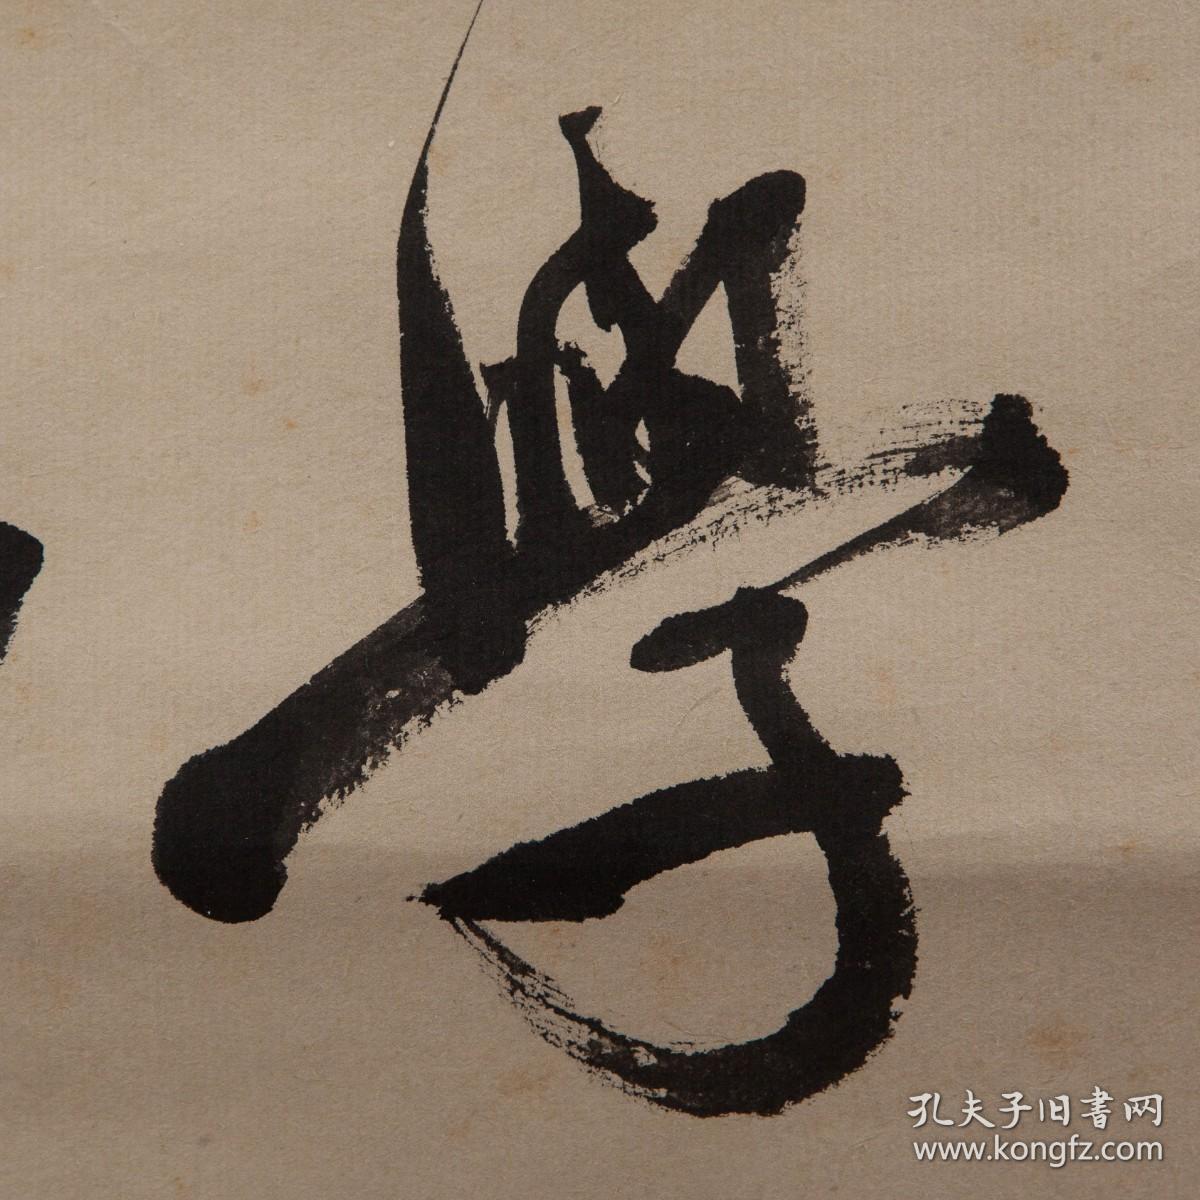 學
孔夫子旧書网
www.kongfz.com